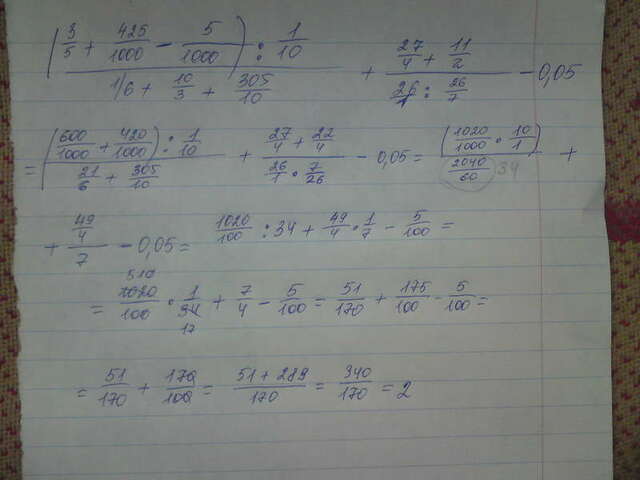 (3/5 + 425/1000 - 5/1000) : 1/10 / (1/6 + 10/3 + 305/10) + (27/4 + 11/2) / (26/1 : 26/7) - 0,05
= (600/1000 + 420/1000) : 1/10 / (21/6 + 305/10) + (27/4 + 22/4) / (26/1 · 7/26) - 0,05 = (1020/1000 · 10/1) / (2040/60) 34 +
+ 49/4 / 7 - 0,05 = 1020/100 : 34 + 49/4 · 1/7 - 5/100 =
510
= 1020/100 · 1/34 + 7/4 - 5/100 = 51/170 + 175/100 - 5/100 =
17
= 51/170 + 170/100 = (51 + 289)/170 = 340/170 = 2